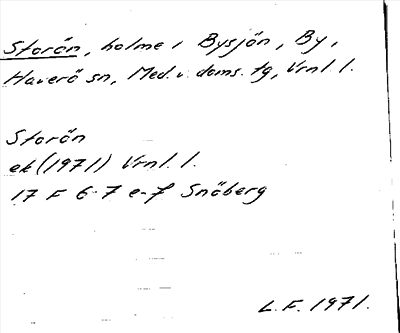 Storön, holme i Bysjön, By,
Haverö sn, Med. v. doms. tg, Vrnl. l.
Storön
ek (1971) Vrnl. l.
17 F 6-7 e-f Snöberg
L.F. 1971.